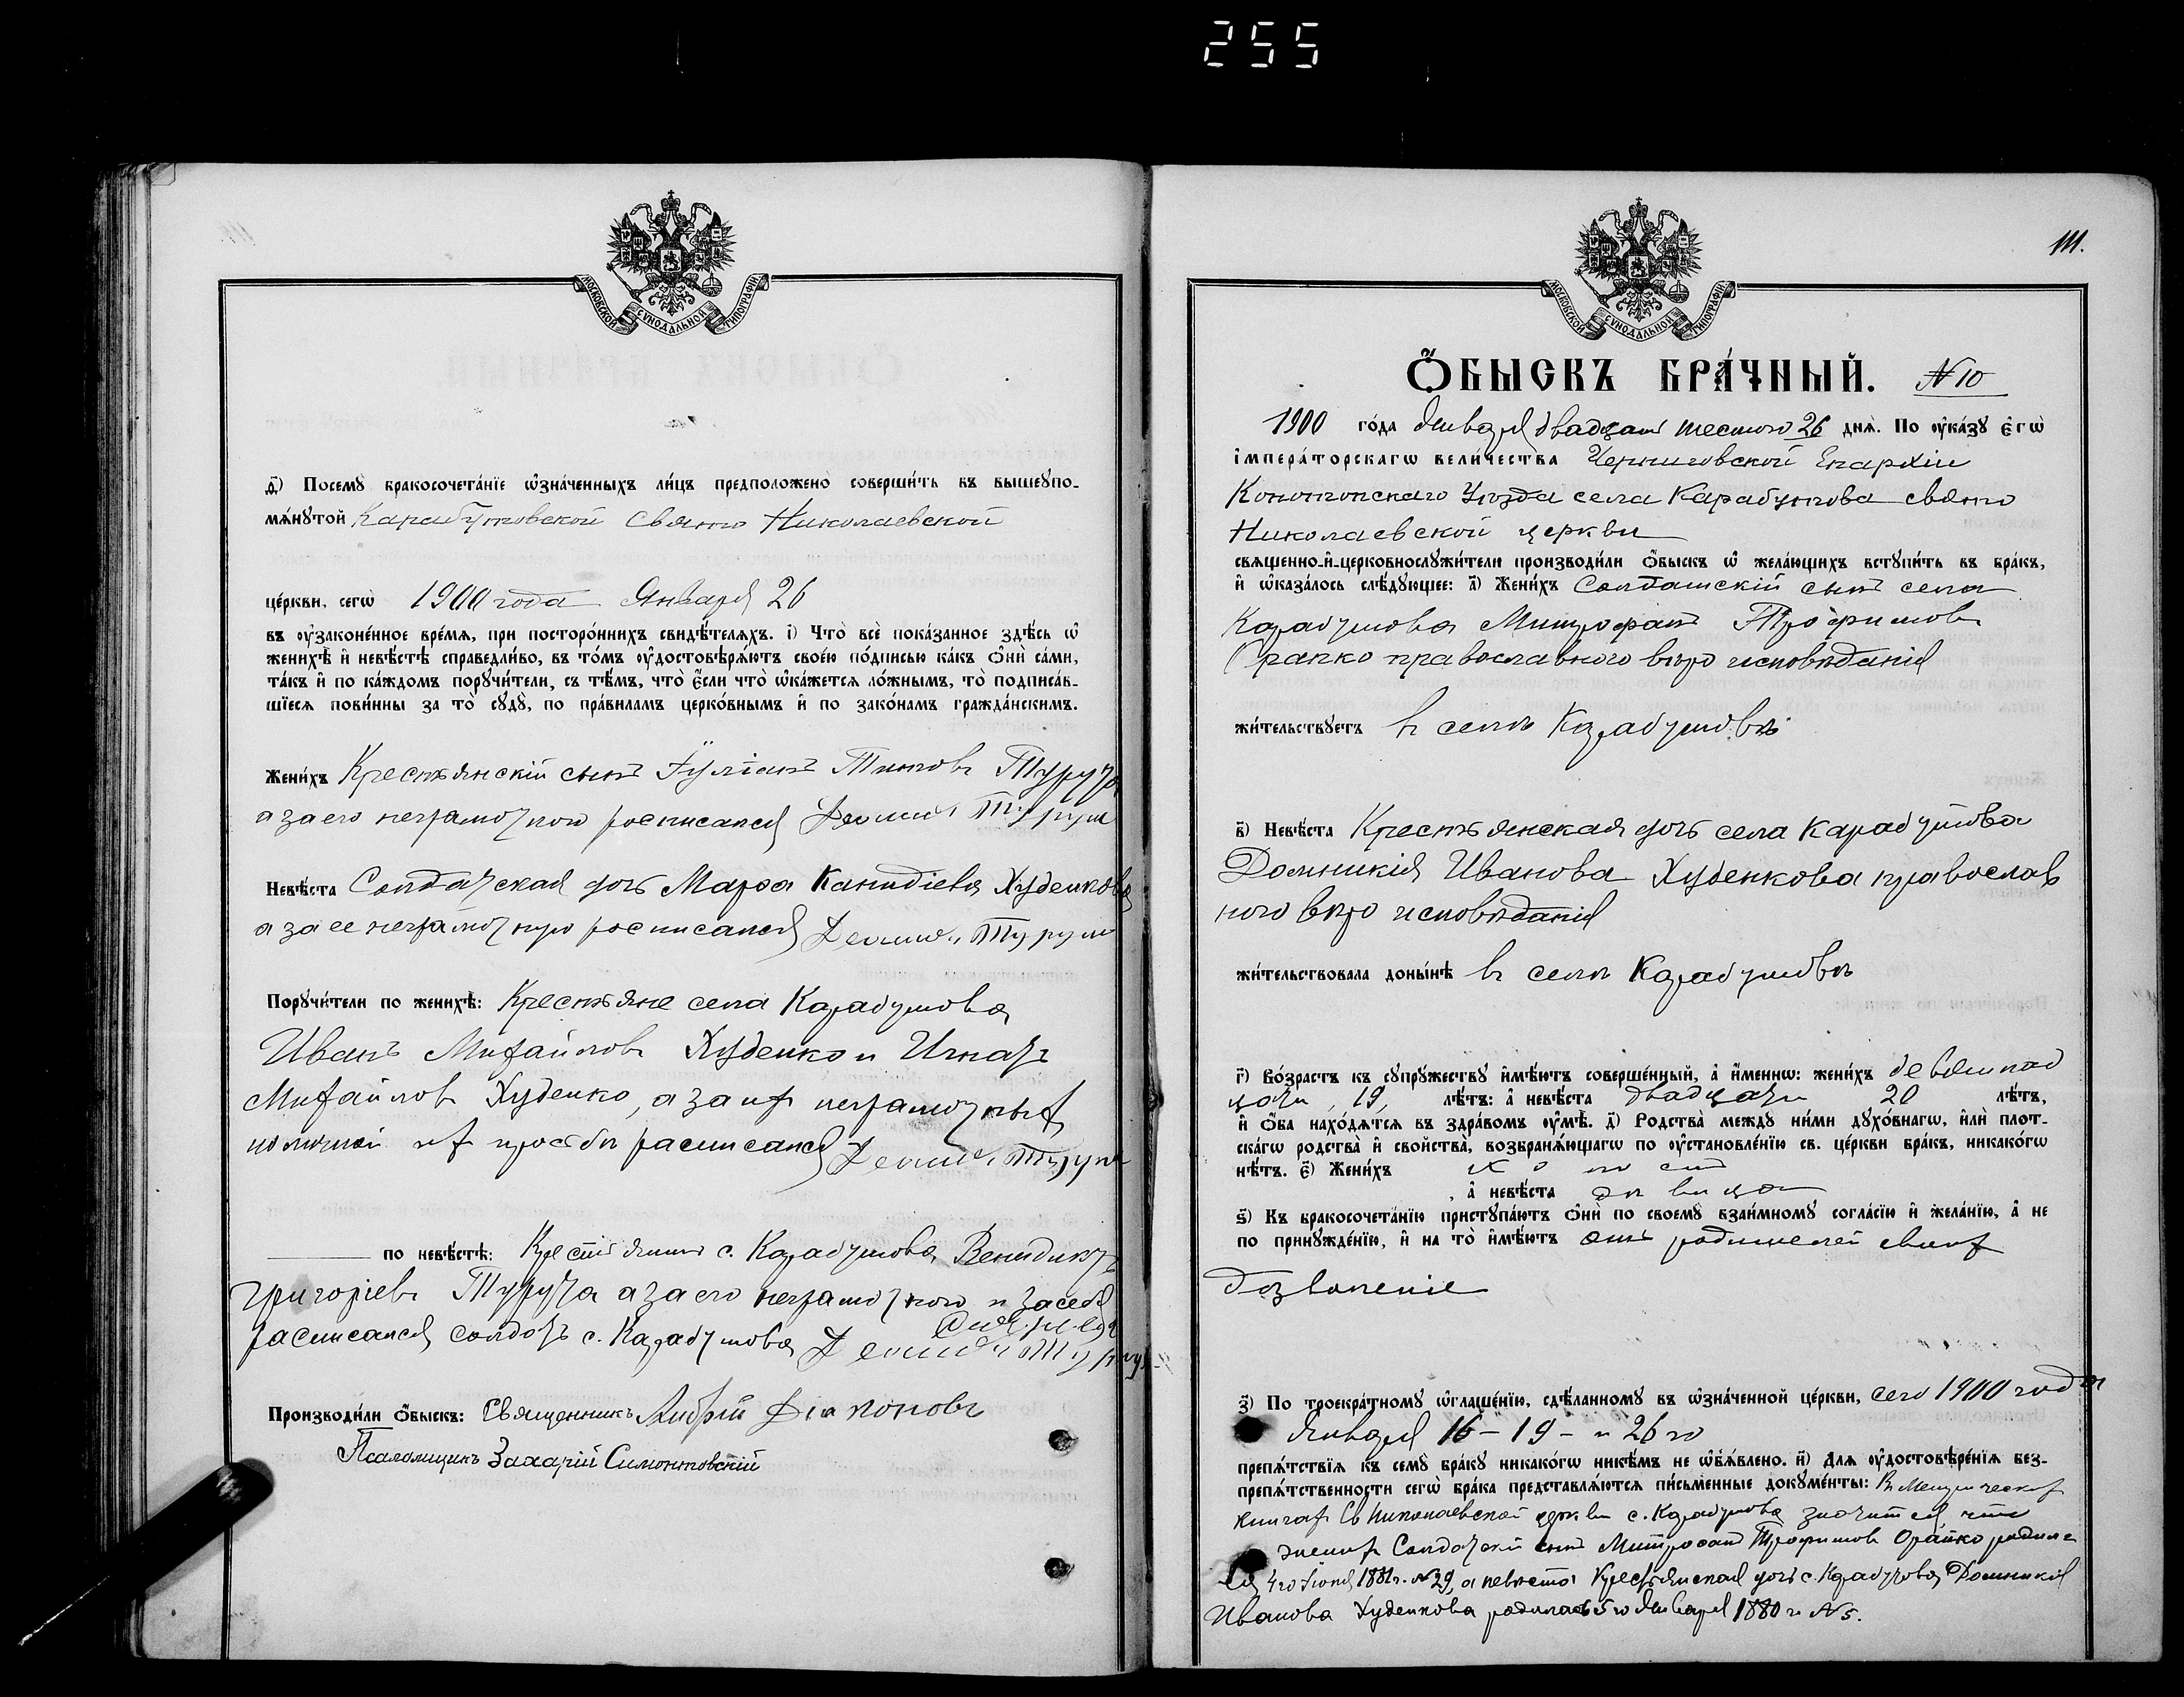 255
МОСКОВСКОЙ СѴНОДАЛЬНОЙ ТИПОГРАФІИ
д҃) Посемꙋ бракосочета́нїе ѡ҆зна́ченныхъ ли́цъ предположено̀ соверши́ть въ вышеꙋпо-
мѧ́нꙋтой Карабутовской Свято Николаевской
це́ркви, сегѡ̀ 1900 года Января 26
въ ᲂу҆законе́нное вре́мѧ, при посторо́ннихъ свидѣ́телѧхъ. і҃) Что̀ всѐ пока́занное здѣ́сь ѡ҆
женихѣ̀ и҆ невѣ́стѣ справедли́во, въ то́мъ ᲂу҆достовѣрѧ́ютъ свое́ю по́дписью ка́къ ѻ҆нѝ са́ми,
та́къ и҆ по ка́ждомъ порꙋчи́тели, съ тѣ́мъ, что̀ є҆́сли что̀ ѡ҆ка́жетсѧ ло́жнымъ, то̀ подписа́в-
шїесѧ пови́нны за то̀ сꙋдꙋ̀, по пра́виламъ церко́внымъ и҆ по зако́намъ гражда́нскимъ.
Жени́хъ Крестьянскій сынъ Іуліанъ Титовъ Турута
а за его неграмотного росписался Турута
Невѣ́ста Солдатская дочь Марѳа Канидіева Худенкова
а за ее неграмотную росписался Турута
Порꙋчи́тели по женихѣ̀: Крестьяне села Карабутова
Иванъ Михайловъ Худенко и Игнатъ
Михайловъ Худенко, а за их неграмотных
по личной их просьбѣ расписался Турута
по невѣ́стѣ: Крестьянинъ с. Карабутова Венидиктъ
Григоріевъ Турута а за его неграмотного и за себя
расписался солдатъ с. Карабутова Турута
Производи́ли ѻ҆́быскъ: Священникъ Андрій Діаконовъ
Псаломщикъ Захарій Симонтовскій
111.
МОСКОВСКОЙ СѴНОДАЛЬНОЙ ТИПОГРАФІИ
Ѻ҆́БЫСКЪ БРА́ЧНЫЙ. № 10
1900 го́да Января двадцать шестого 26 днѧ̀. По ᲂу҆ка́зꙋ є҆гѡ̀
і҆мпера́торскагѡ вели́чества Черниговской Епархіи
Конотопскаго Уѣзда села Карабутова свято
Николаевской церкви
свѧщенно-и҆-церковнослꙋжи́тели производи́ли ѻ҆́быскъ ѡ҆ жела́ющихъ встꙋпи́ть въ бра́къ,
и҆ ѡ҆каза́лось слѣ́дꙋющее: а҃) Жени́хъ Солдатскій сынъ села
Карабутова Митрофанъ Трофимовъ
Орапко православного вѣро исповѣданія
жи́тельствꙋетъ в селѣ Карабутовѣ
в҃) Невѣ́ста Крестьянская дочь села Карабутова
Домникія Иванова Худенкова православ
ного вѣро исповѣданія
жи́тельствовала доны́нѣ в селѣ Карабутовѣ
г҃) Во́зрастъ къ сꙋпрꙋ́жествꙋ и҆мѣ́ютъ соверше́нный, а҆ и҆́меннѡ: жени́хъ девятнад
цать, 19, лѣ́тъ: а҆ невѣ́ста двадцать 20 лѣ́тъ,
и҆ ѻ҆́ба нахо́дѧтсѧ въ здра́вомъ ᲂу҆мѣ̀. д҃) Родства̀ междꙋ ни́ми дꙋхо́внагѡ, и҆лѝ плот-
ска́гѡ родства̀ и҆ свойства̀, возбранѧ́ющагѡ по ᲂу҆становле́нїю св. це́ркви бра́къ, никако́гѡ
нѣ́тъ. є҃) Жени́хъ холостъ
а҆ невѣ́ста дѣвица
ѕ҃) Къ бракосочета́нїю пристꙋпа́ютъ ѻ҆нѝ по своемꙋ̀ взаи́мномꙋ согла́сїю и҆ жела́нїю, а҆ не
по принꙋжде́нїю, и҆ на то̀ и҆мѣ́ютъ отъ родителей своих
дозволеніе
з҃) По троекра́тномꙋ ѡ҆глаше́нїю, сдѣ́ланномꙋ въ ѡ҆зна́ченной це́ркви, сего 1900 года
Января 16 - 19 - и 26 го
препѧ́тствїѧ къ семꙋ̀ бра́кꙋ никако́гѡ никѣ́мъ не ѡ҆б̾ѧ́влено. и҃) Длѧ ᲂу҆достовѣре́нїѧ без-
препѧ́тственности сегѡ̀ бра́ка представлѧ́ютсѧ пи́сьменные докꙋме́нты: В Метрических
книгах Св Николаевской церкви с. Карабутова значится что
жених Солдатскій сынъ Митрофанъ Трофимов Орапко родил
ся 4 го Іюня 1881 г. № 29, а невѣста Крестьянская дочь с. Карабутова Домникія
Иванова Худенкова родилась 5 го Января 1880 г. № 5.